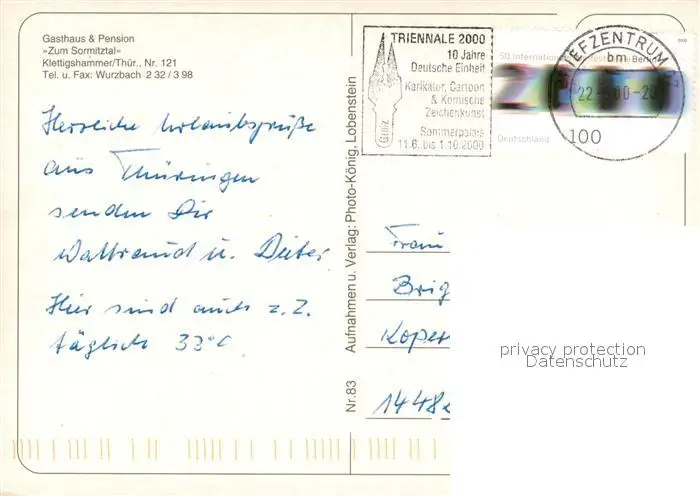 Gasthaus & Pension
»Zum Sormitztal«
Klettigshammer/Thür., Nr. 121
Tel. u. Fax: Wurzbach 2 32 / 3 98
Herzliche Urlaubsgrüße
aus Thüringen
senden Dir
Waltraud u. Dieter
Hier sind auch z. Z.
täglich 33°C
Nr. 83
Aufnahmen u. Verlag: Photo-König, Lobenstein
TRIENNALE 2000
10 Jahre
Deutsche Einheit
Karikatur, Cartoon
& Komische
Zeichenkunst
Sommerpalais
11.6. bis 1.10.2000
Greiz
50 Internationale
Berlin
Deutschland
100
BRIEFZENTRUM
bm
Frau
Brig
Koper
1448
privacy protection
Datenschutz